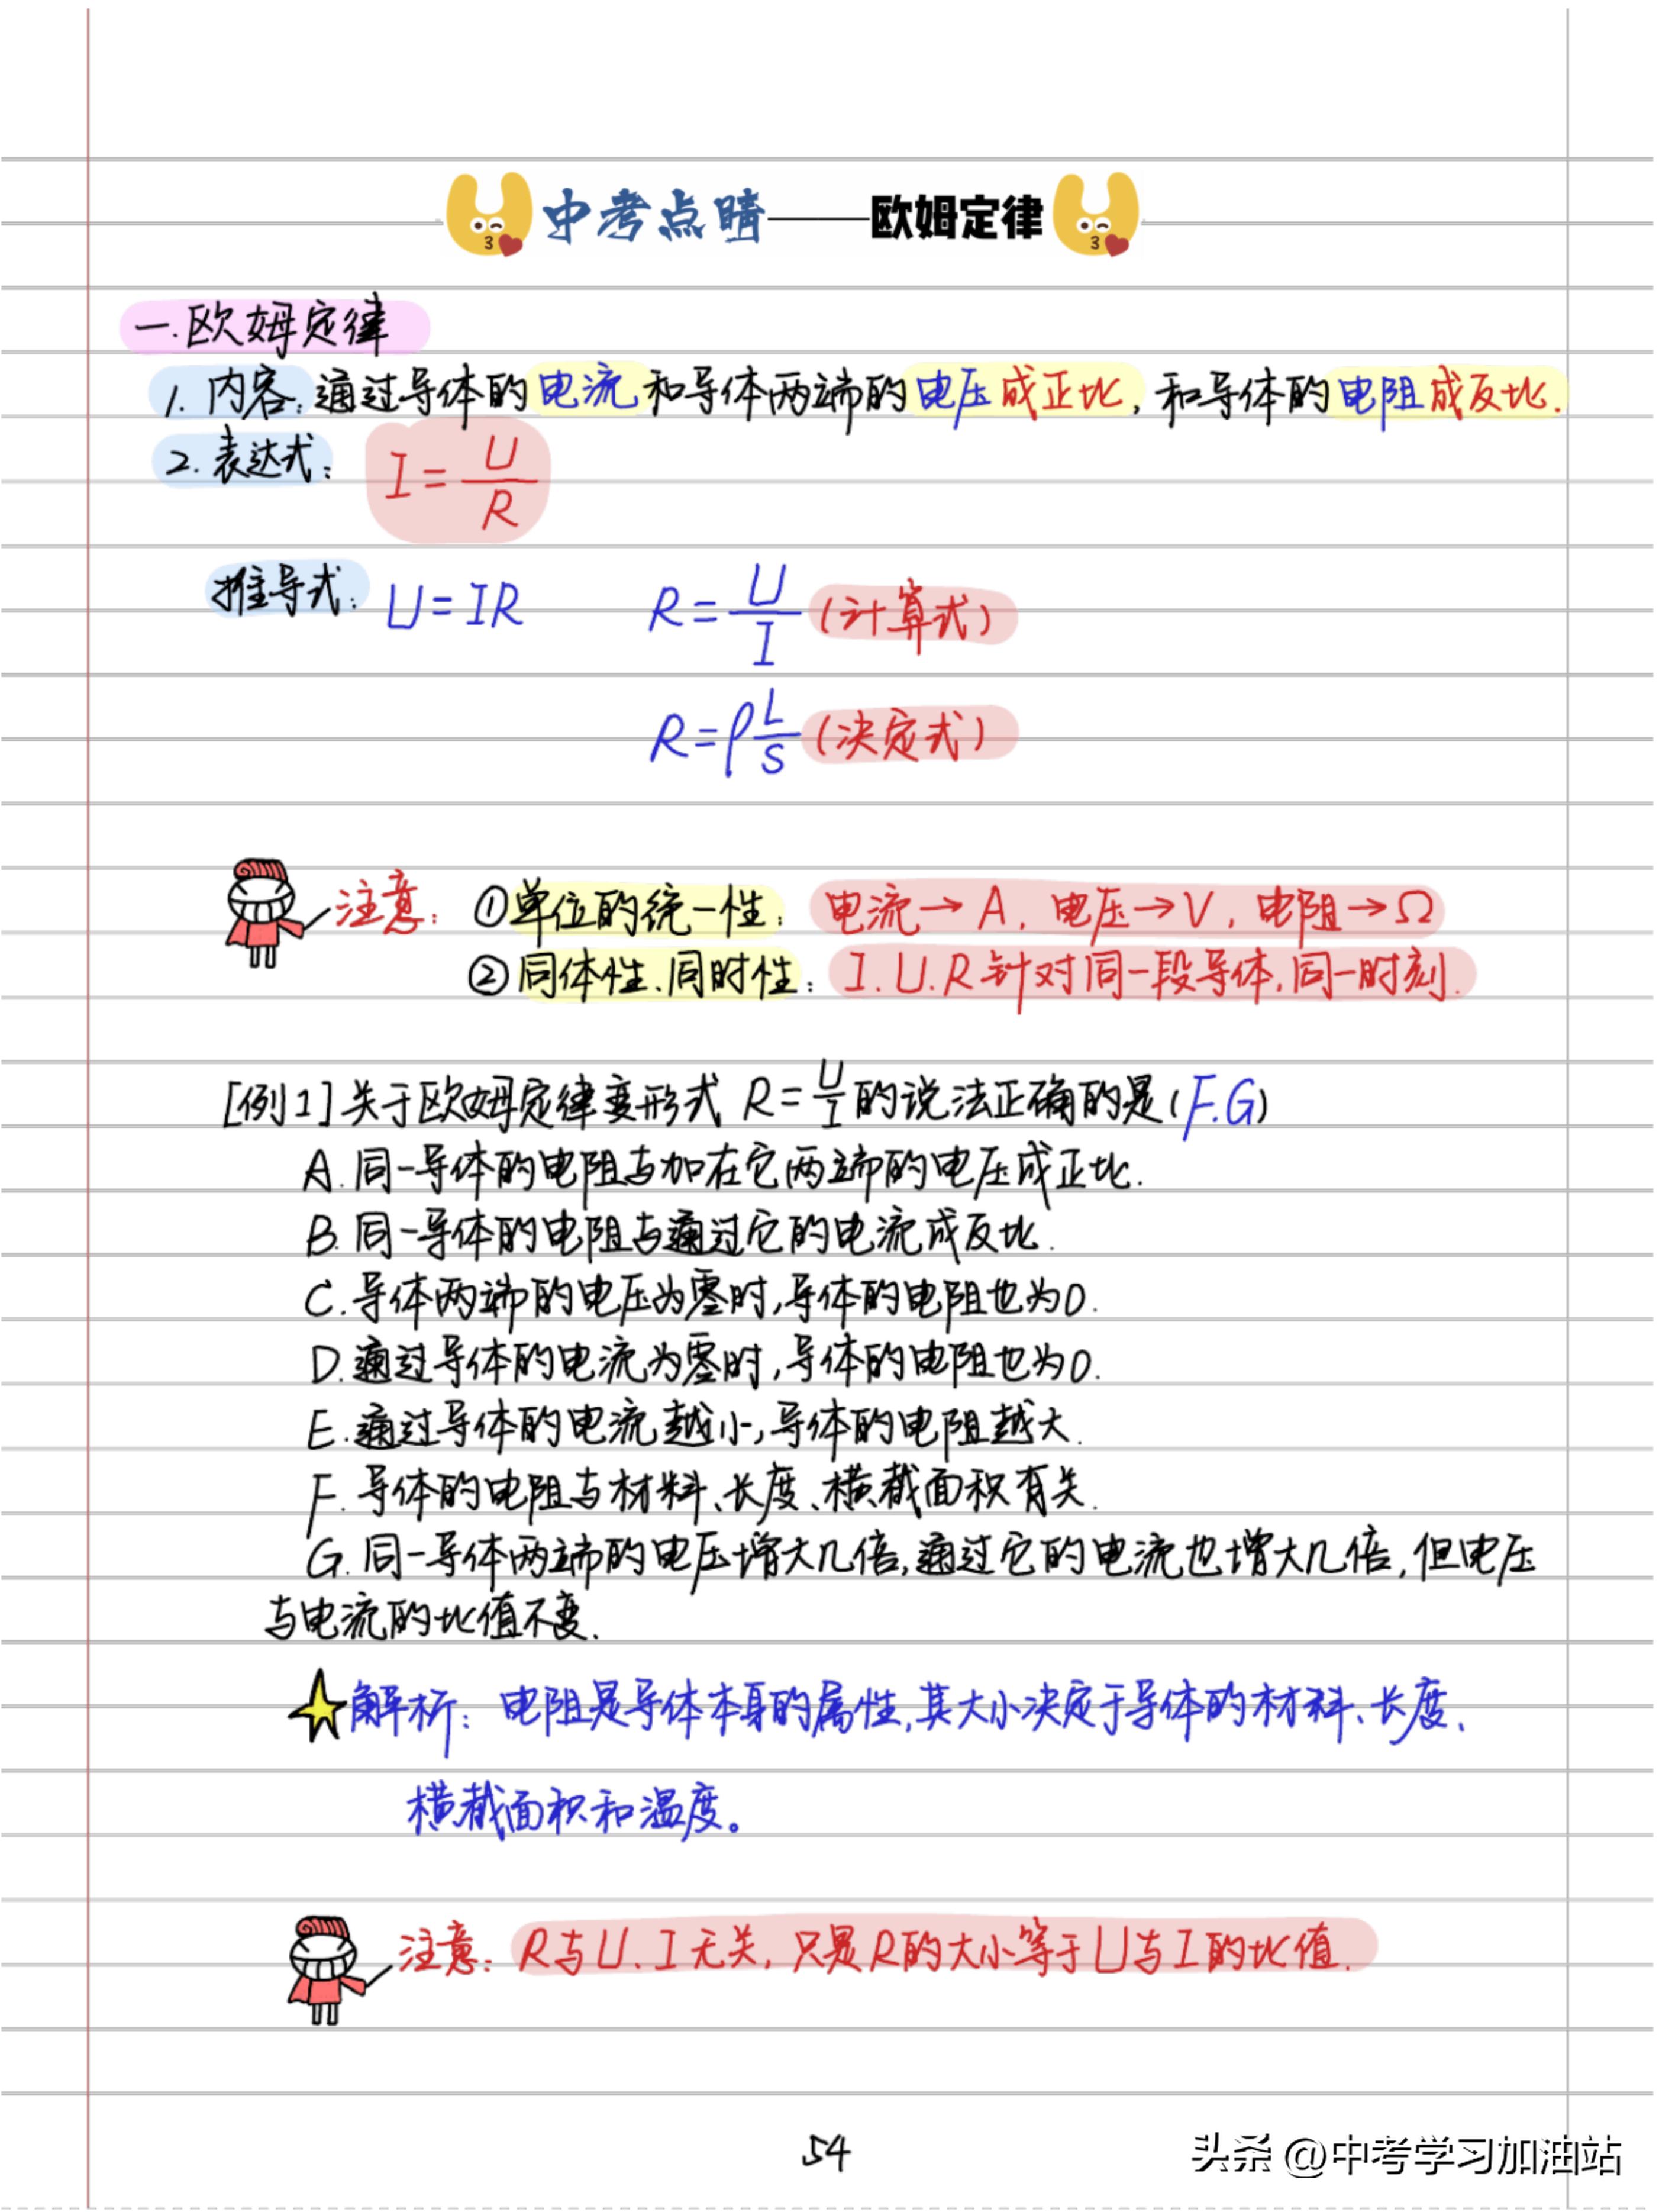 中考点睛——欧姆定律
一.欧姆定律
1.内容:通过导体的电流和导体两端的电压成正比,和导体的电阻成反比.
2.表达式: I=U/R
推导式: U=IR R=U/I (计算式)
R=ρL/S (决定式)
注意: ①单位的统一性: 电流→A, 电压→V, 电阻→Ω
②同体性、同时性: I.U.R针对同一段导体,同一时刻.
[例1]关于欧姆定律变形式 R=U/I的说法正确的是(F.G)
A.同一导体的电阻与加在它两端的电压成正比.
B.同一导体的电阻与通过它的电流成反比.
C.导体两端的电压为零时,导体的电阻也为0.
D.通过导体的电流为零时,导体的电阻也为0.
E.通过导体的电流越小,导体的电阻越大.
F.导体的电阻与材料、长度、横截面积有关.
G.同一导体两端的电压增大几倍,通过它的电流也增大几倍,但电压
与电流的比值不变.
解析: 电阻是导体本身的属性,其大小决定于导体的材料、长度、
横截面积和温度。
注意: R与U、I无关,只是R的大小等于U与I的比值.
54
头条 @中考学习加油站